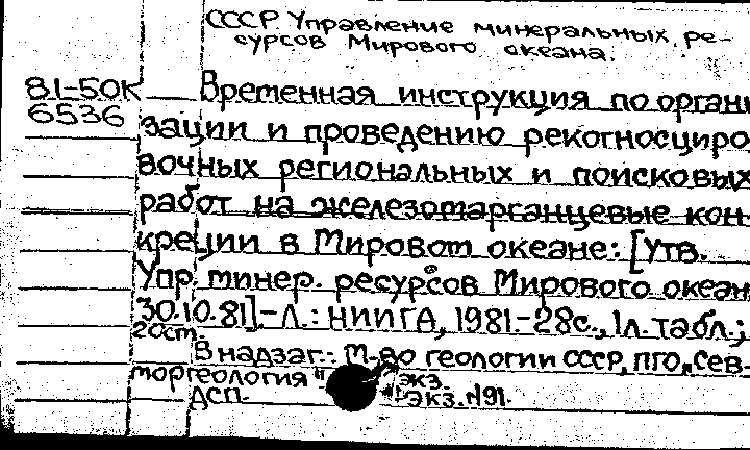 СССР. Управление минеральных ре-
сурсов Мирового океана.
81-50К Временная инструкция по органи
6536 зации и проведению рекогносциро
вочных региональных и поисковых
работ на железомарганцевые кон-
креции в Мировом океане: [Утв.
Упр. минер. ресурсов Мирового океан
30.10.81].- Л.: НИИГА, 1981.-28с., 1л. табл.;
20см.
В надзаг.: М-во геологии СССР, ПГО „Сев-
моргеология" экз.
ДСП. Экз. №91.